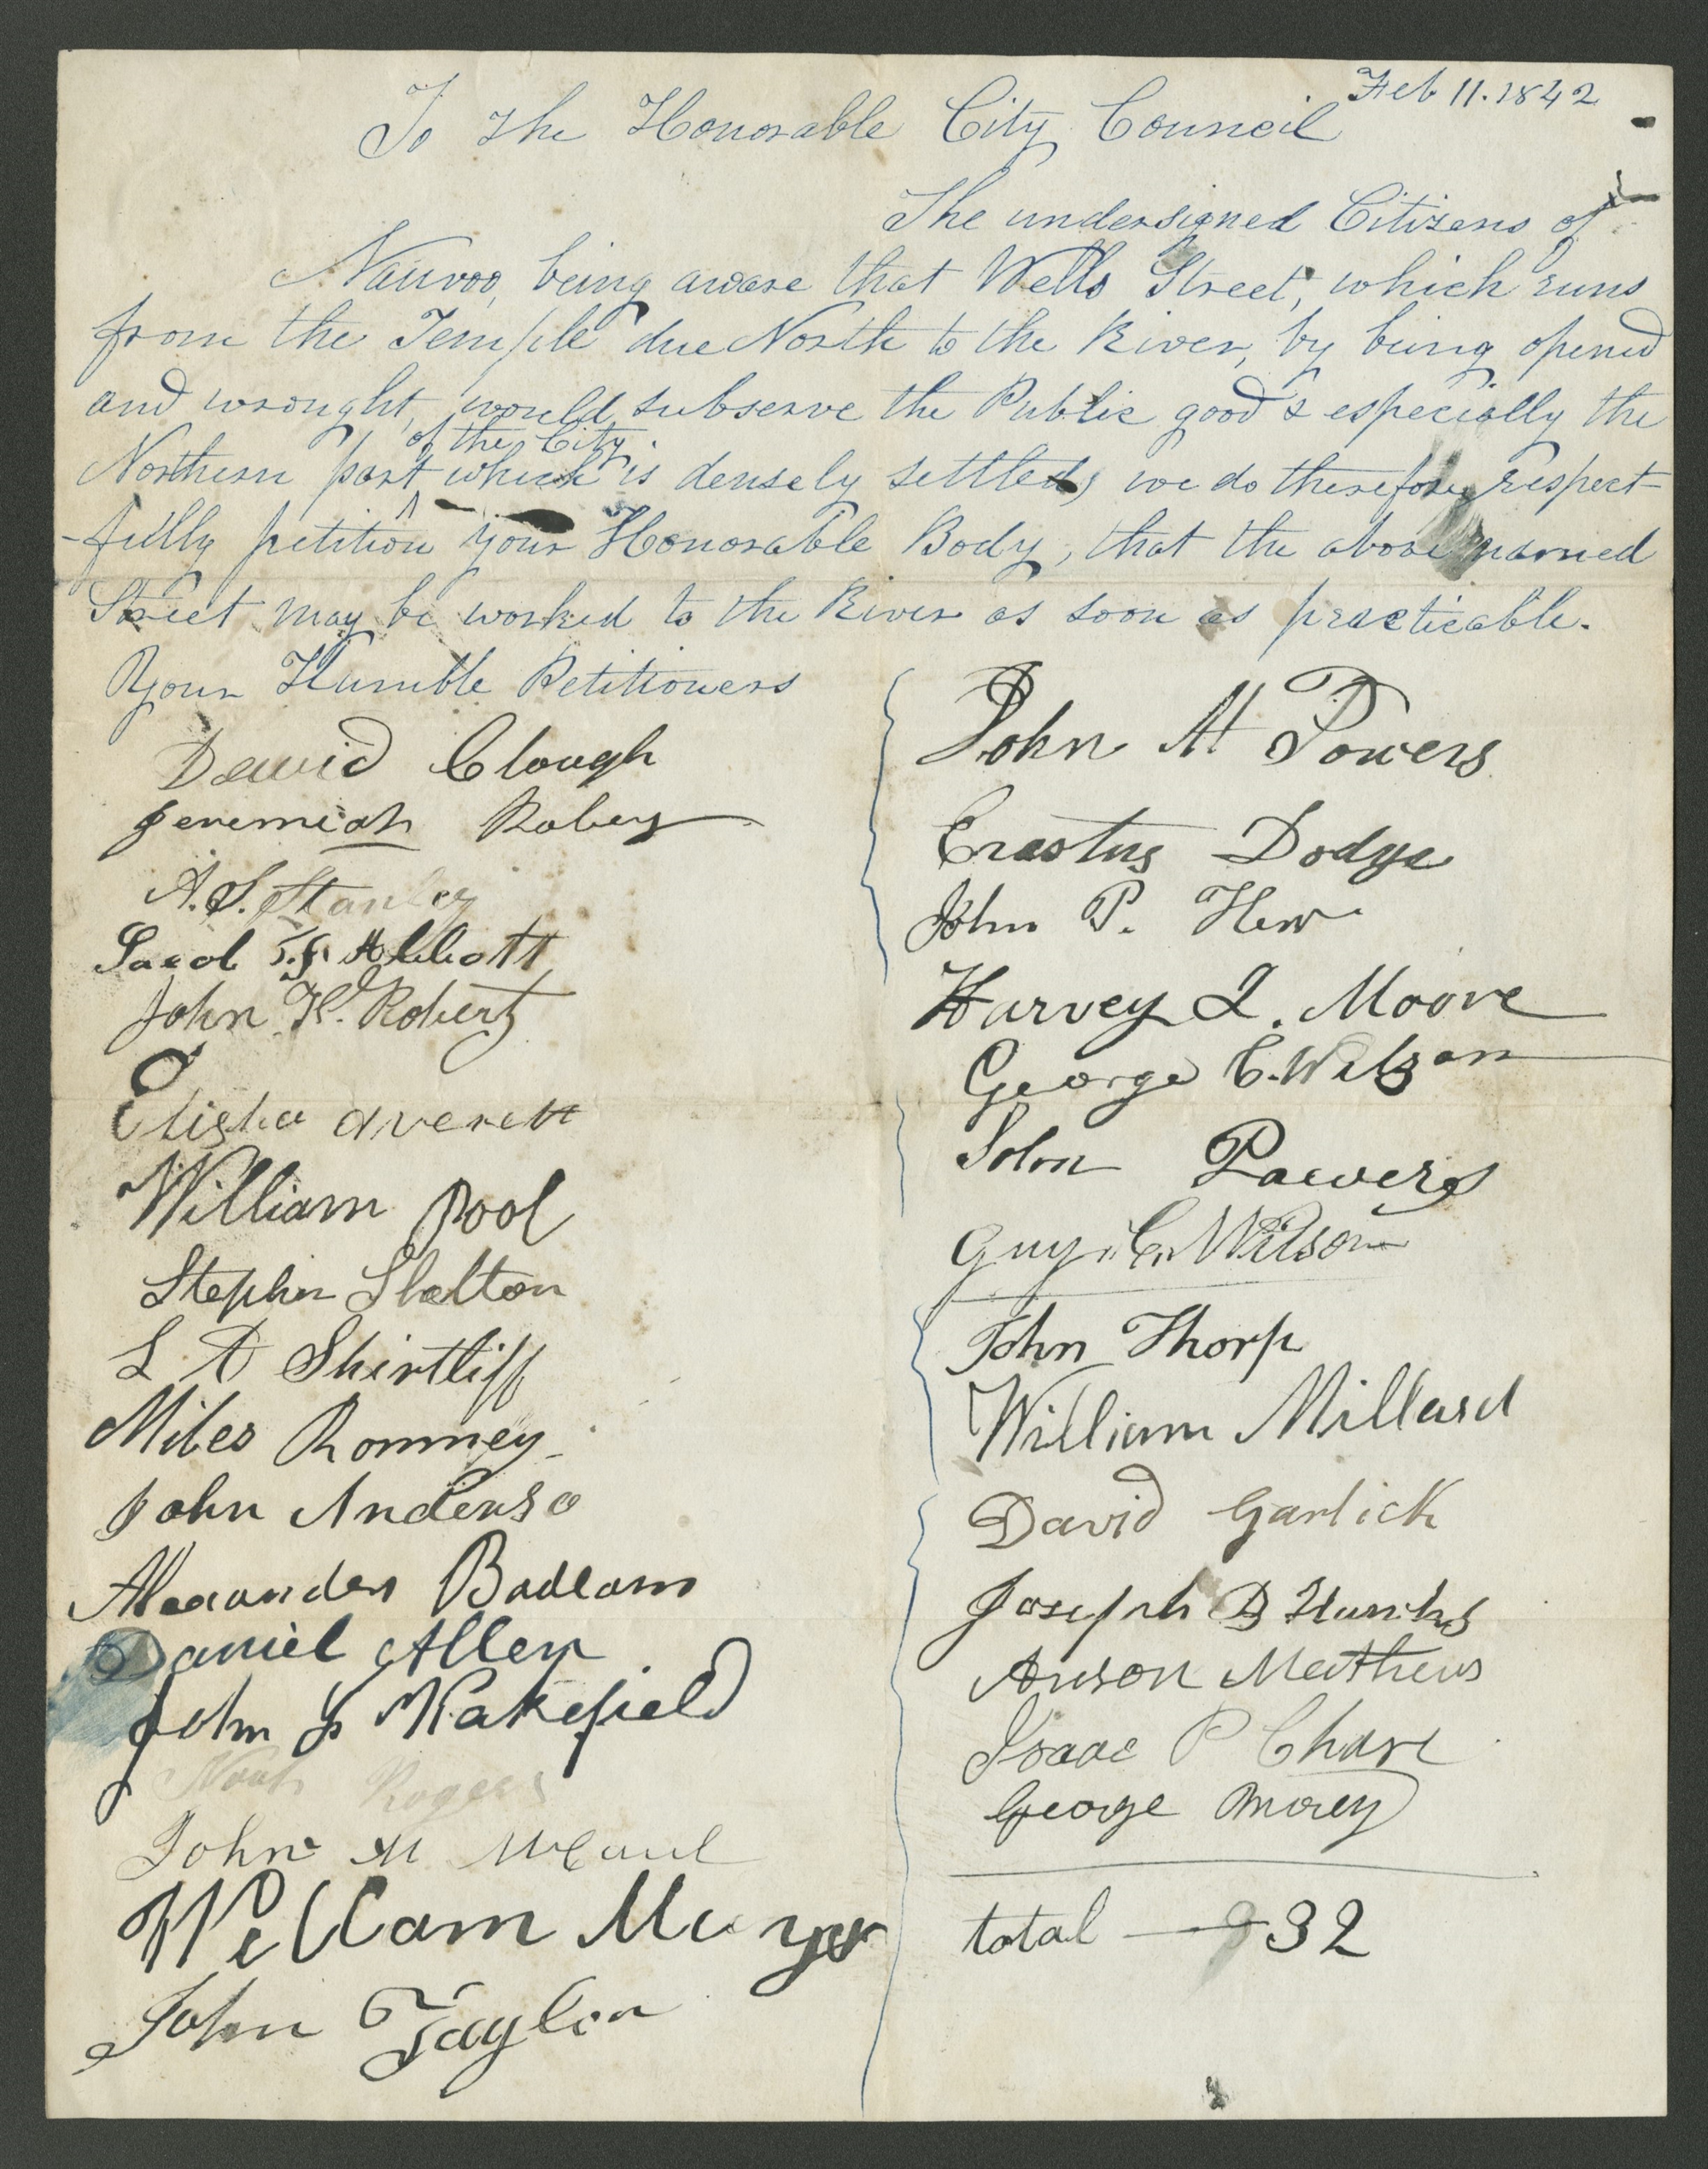 Feb 11. 1842
To the Honorable City Council
The undersigned Citizens of
Nauvoo, being aware that Wells Street, which runs
from the Temple due North to the River, by being opened
and wrought, would subserve the Public good & especially the
of the City
Northern part which is densely settled, we do therefore, respect-
-fully petition your Honorable Body, that the above named
Street may be worked to the River as soon as practicable.
Your Humble Petitioners
David Clough
Jeremiah Robey
A. S. Stanley
Jacob Abbott
John K. Robert
Elisha Averett
William Pool
Stephen Shelton
L A Shirtliff
Miles Romney
John Anderso
Alexander Badlam
Daniel Allen
John F Wakefield
Noah Rogers
John M
William
John Taylor
John M Powers
Erastus Dodge
John P. Hew
Harvey J. Moore
George C. Wilson
John Powers
Guy C. Wilson
John Thorp
William Millard
David Garlick
Joseph B
Anson Matthews
Isaac P Chase
George Morey
total — 32